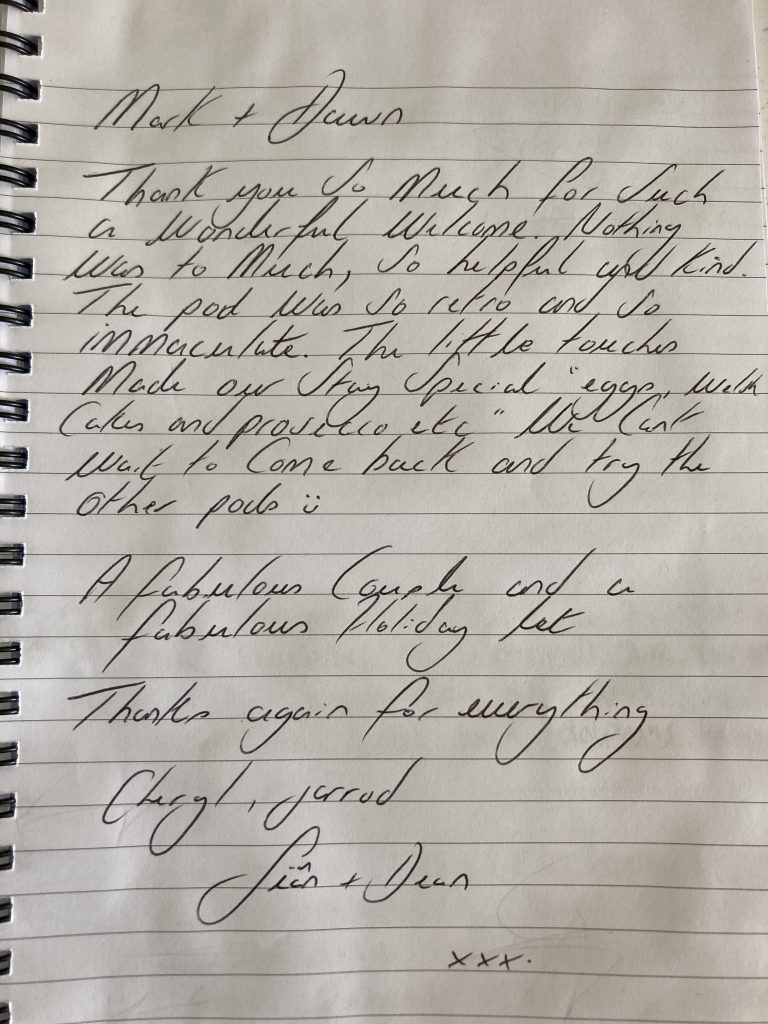 Mark + Dawn
Thank you so Much for Such
a Wonderful Welcome. Nothing
Was to Much, So helpful and Kind.
The pod Was So retro and So
immaculate. The little touches
Made our Stay Special "eggs, Welsh
Cakes and prosecco etc" We Can't
Wait to Come back and try the
Other pods :)
A fabulous Couple and a
fabulous Holiday let
Thanks again for everything
Cheryl, Jarrod
Siân + Dean
xxx.